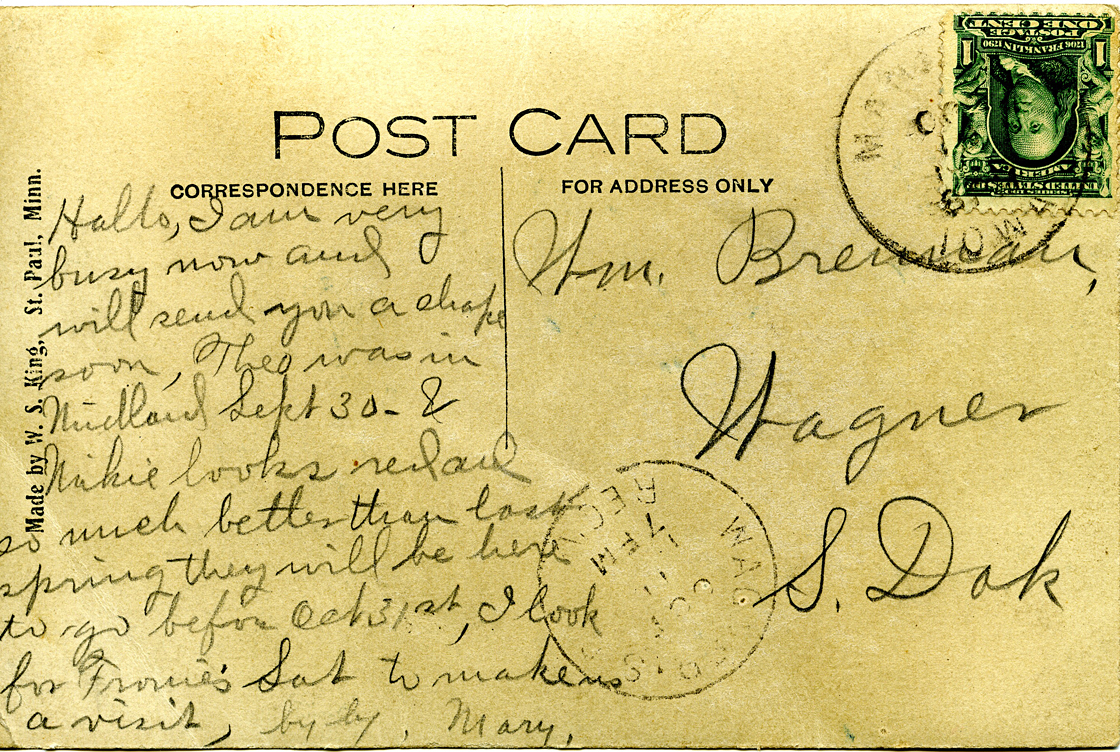 POST CARD
CORRESPONDENCE HERE
FOR ADDRESS ONLY
Made by W. S. King, St. Paul, Minn.
Hallo, I am very
busy now and
will send you a
soon, Theo was in
Midland Sept 30 - &
looks
so much better than last
spring they will be here
to go befor Oct 31st, I look
for Fronie's Sat to make us
a visit, by by, Mary,
Wm. Brennan,
Wagner
S. Dak
ONE CENT
POSTAGE
1706 FRANKLIN 1790
1 1
AMERICA
UNITED STATES OF
SERIES 1902
WAGNER
REC'D
7 PM
S. DIS